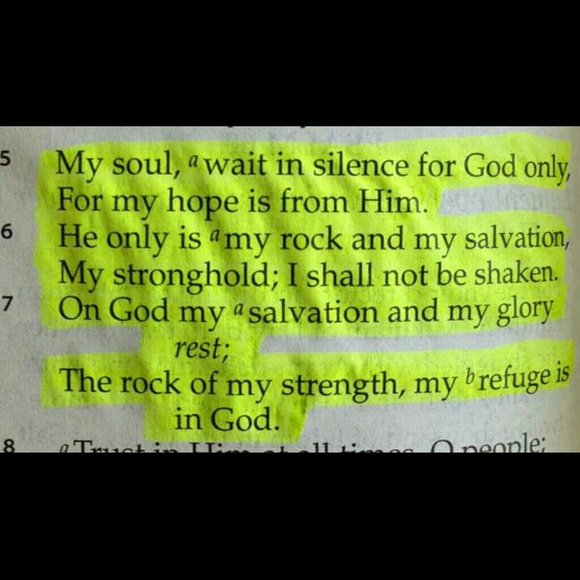 5 My soul, a wait in silence for God only,
For my hope is from Him.
6 He only is a my rock and my salvation,
My stronghold; I shall not be shaken.
7 On God my a salvation and my glory
rest;
The rock of my strength, my b refuge is
in God.
8 a Trust in Him at all times, O people;